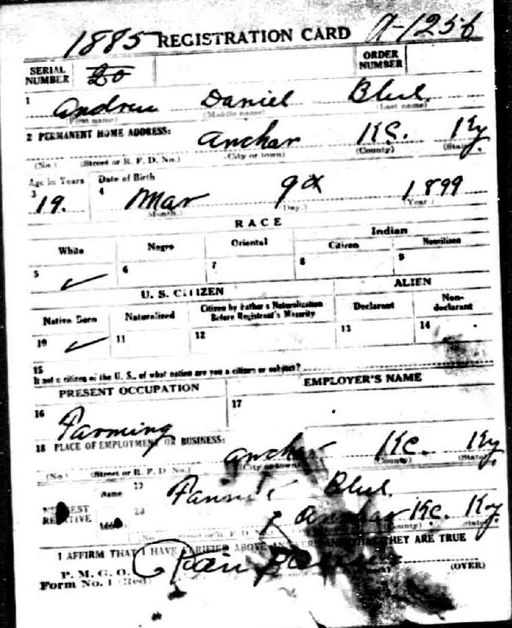 1885 REGISTRATION CARD A-1256
SERIAL NUMBER 20 ORDER NUMBER
1 Andrew Daniel Blue
(First name) (Middle name) (Last name)
2 PERMANENT HOME ADDRESS: Anchor Kc. Ky
(No.) (Street or R. F. D. No.) (City or town) (County) (State)
Age in Years Date of Birth
3 19. 4 Mar 9th 1899
(Month.) (Day.) (Year.)
RACE
White Negro Oriental Indian
Citizen Noncitizen
5 ✓ 6 7 8 9
U. S. CITIZEN ALIEN
Native Born Naturalized Citizen by Father's Naturalization Before Registrant's Majority Declarant Non-declarant
10 ✓ 11 12 13 14
15
If not a citizen of the U. S., of what nation are you a citizen or subject?
PRESENT OCCUPATION EMPLOYER'S NAME
16 Farming 17
18 PLACE OF EMPLOYMENT OR BUSINESS: Anchor Kc. Ky
(No.) (Street or R. F. D. No.) (City or town) (County) (State)
NEAREST RELATIVE Name 19 Blue
20 Anchor Kc. Ky
(No.) (Street or R. F. D. No.) (County) (State)
I AFFIRM THAT I HAVE VERIFIED ABOVE THEY ARE TRUE
P. M. G. O.
Form No. 1 (Red) (OVER)